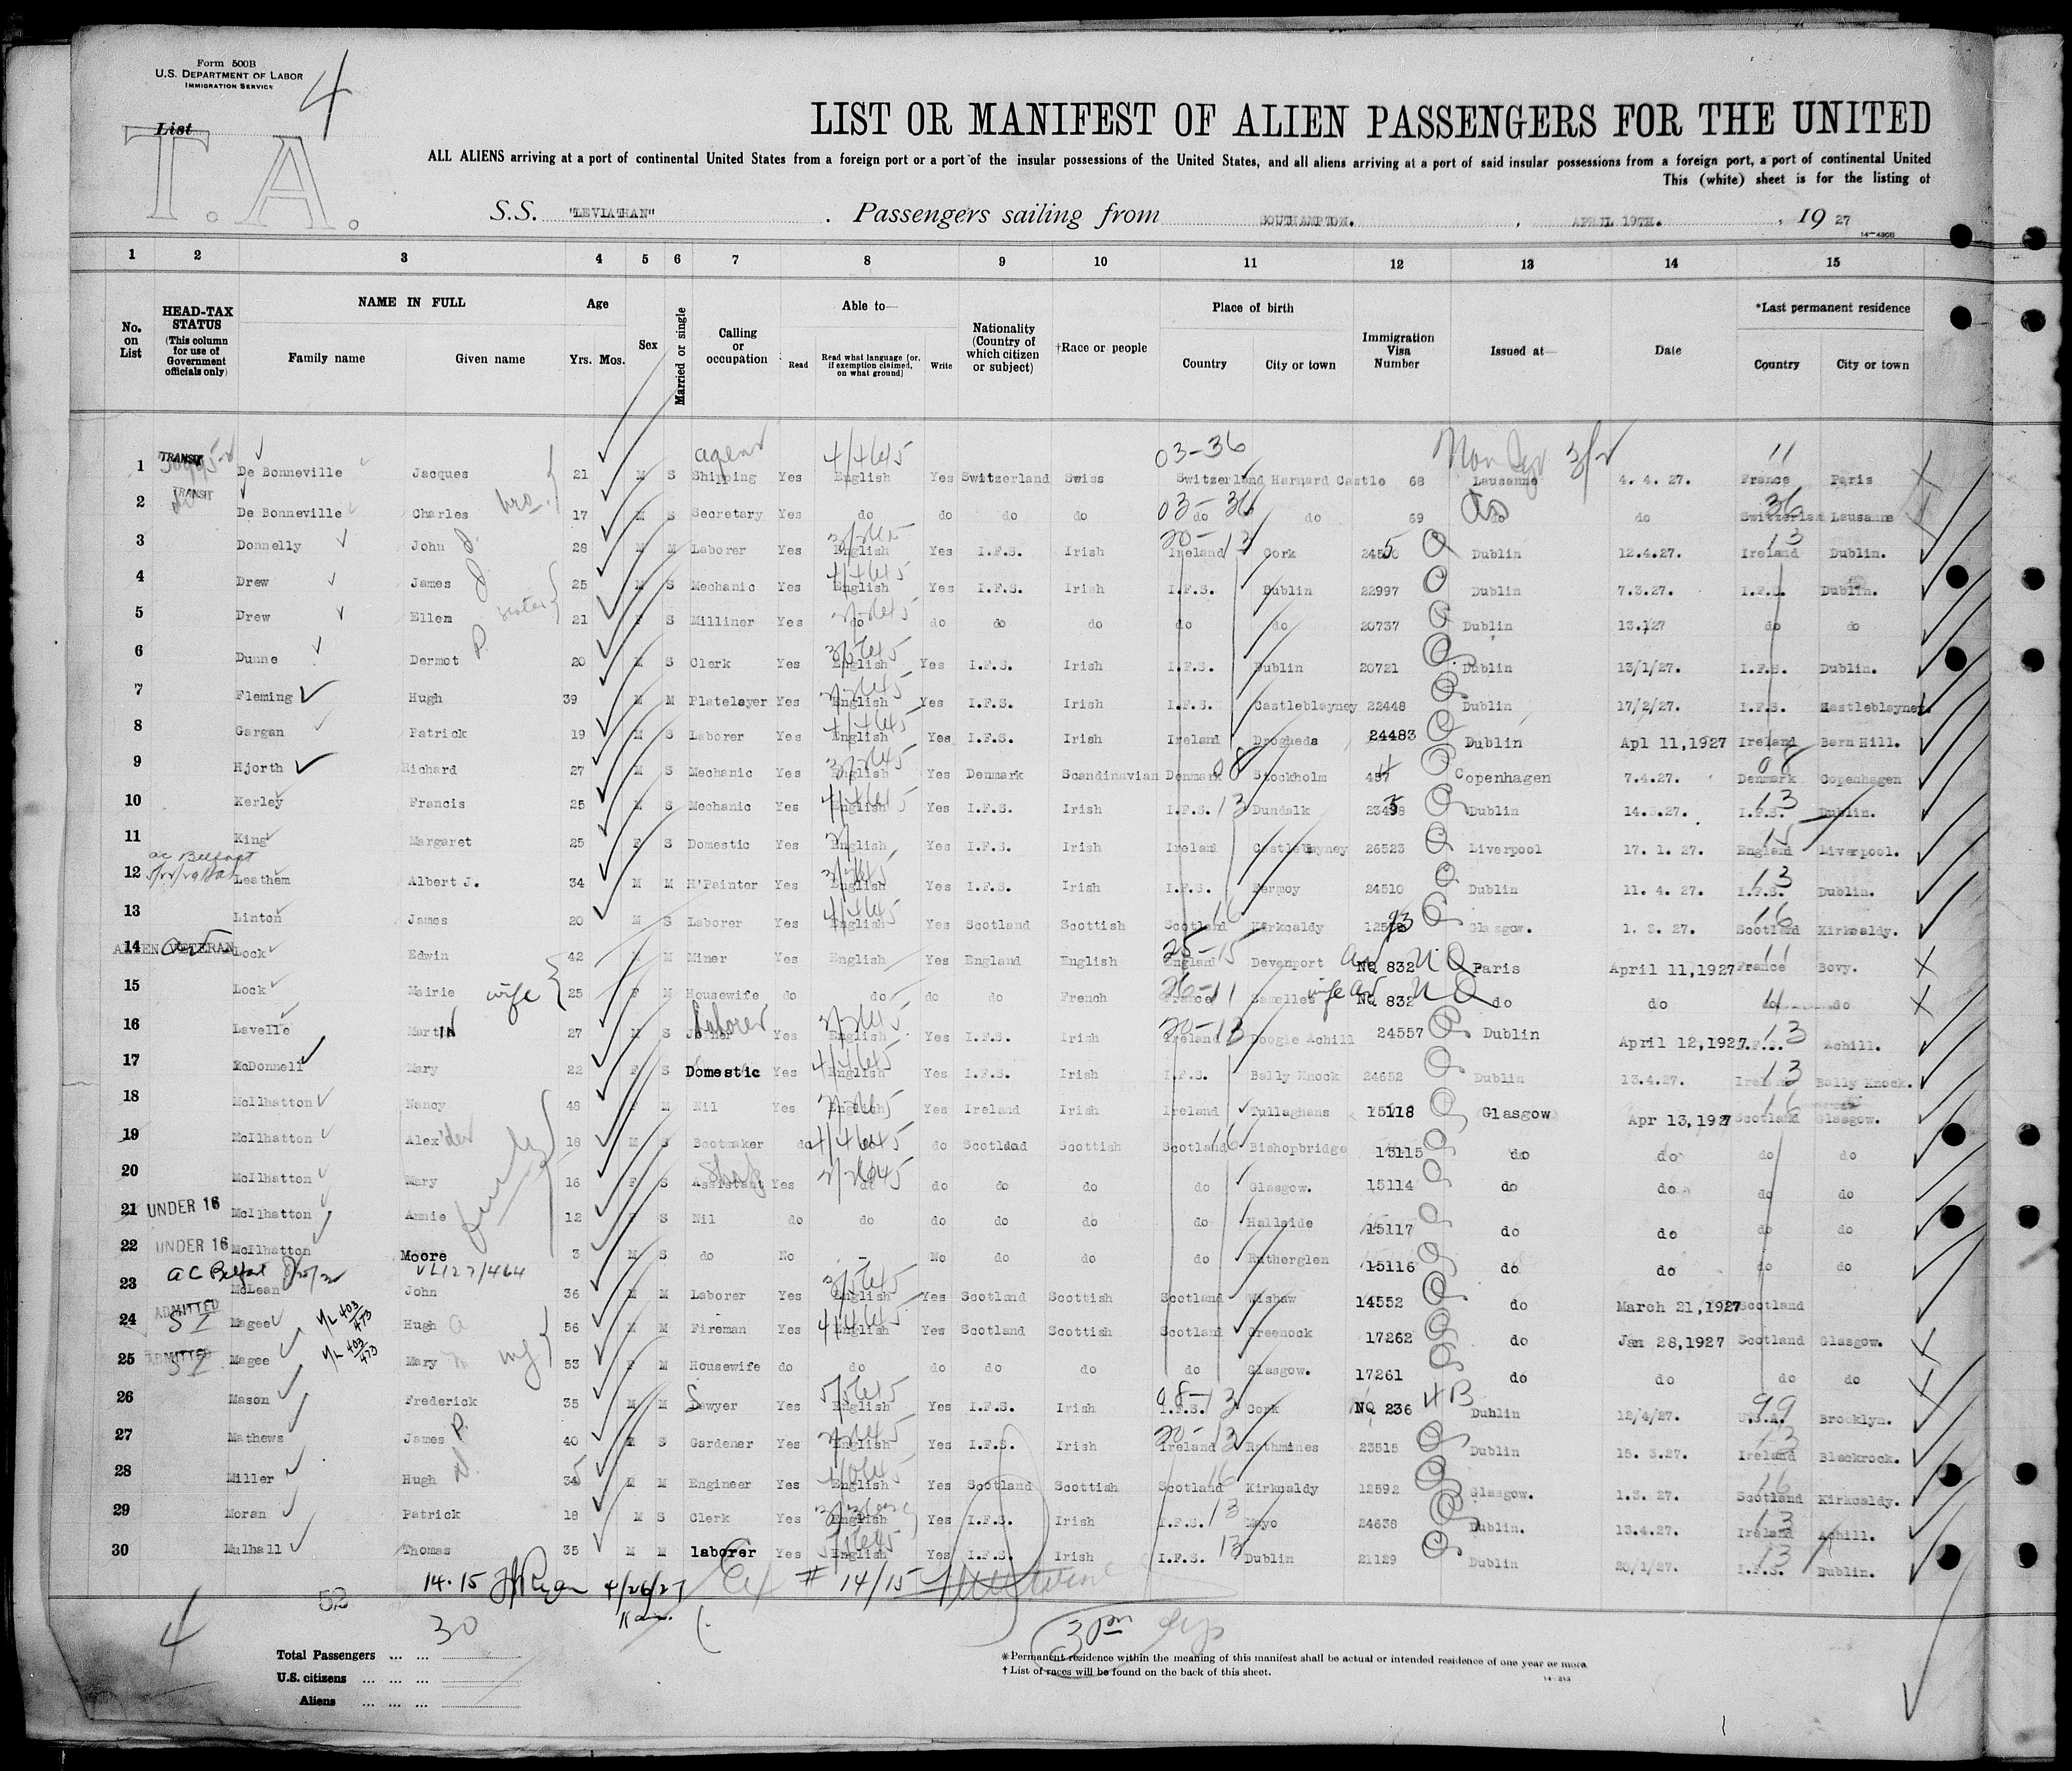 Form 500B
U.S. DEPARTMENT OF LABOR
IMMIGRATION SERVICE
4
List
T. A.
LIST OR MANIFEST OF ALIEN PASSENGERS FOR THE UNITED
ALL ALIENS arriving at a port of continental United States from a foreign port or a port of the insular possessions of the United States, and all aliens arriving at a port of said insular possessions from a foreign port, a port of continental United
This (white) sheet is for the listing of
S.S. "LEVIATHAN". Passengers sailing from SOUTHAMPTON., APRIL 19TH., 19 27
1 2 3 4 5 6 7 8 9 10 11 12 13 14 15
No. on List
HEAD-TAX STATUS (This column for use of Government officials only)
NAME IN FULL
Family name Given name
Age
Yrs. Mos.
Sex
Married or single
Calling or occupation
Able to—
Read Read what language (or, if exemption claimed, on what ground) Write
Nationality (Country of which citizen or subject)
†Race or people
Place of birth
Country City or town
Immigration Visa Number
Issued at—
Date
*Last permanent residence
Country City or town
agent 4/4645 03-36 11
1 TRANSIT De Bonneville Jacques 21 M S Shipping Yes English Yes Switzerland Swiss Switzerland Harnard Castle 68 Lausanne 4. 4. 27. France Paris
2 TRANSIT De Bonneville Charles bro. 17 M S Secretary Yes do do do do do do 69 do do Switzerland Lausanne
3 Donnelly John J. 28 M M Laborer Yes English Yes I.F.S. Irish Ireland Cork Dublin 12.4.27. Ireland Dublin.
4 Drew James J. 25 M S Mechanic Yes English Yes I.F.S. Irish I.F.S. Dublin 22997 Dublin 7.3.27. I.F.S. Dublin.
5 Drew Ellen sister 21 F S Milliner Yes do do do do do do 20737 Dublin 13.1/27 do do
6 Dunne Dermot P. 20 M S Clerk Yes English Yes I.F.S. Irish I.F.S. Dublin 20721 Dublin 13/1/27. I.F.S. Dublin.
7 Fleming Hugh 39 M M Platelayer Yes English Yes I.F.S. Irish I.F.S. Castleblayney 22448 Dublin 17/2/27. I.F.S. Castleblayney.
8 Gargan Patrick 19 M S Laborer Yes English Yes I.F.S. Irish Ireland Drogheda 24483 Dublin Apl 11,1927 Ireland Barn Hill.
9 Hjorth Richard 27 M S Mechanic Yes English Yes Denmark Scandinavian Denmark Stockholm Copenhagen 7.4.27. Denmark Copenhagen
10 Kerley Francis 25 M S Mechanic Yes English Yes I.F.S. Irish I.F.S. Dundalk Dublin 14.3.27. I.F.S. Dublin.
11 King Margaret 25 F S Domestic Yes English Yes I.F.S. Irish Ireland Castleblayney 26523 Liverpool 17. 1. 27. England Liverpool.
12 Leathem Albert J. 34 M M H'Painter Yes English Yes I.F.S. Irish I.F.S. Fermoy 24510 Dublin 11. 4. 27. I.F.S. Dublin.
13 Linton James 20 M S Laborer Yes English Yes Scotland Scottish Scotland Kirkcaldy Glasgow. 1. 3. 27. Scotland Kirkcaldy.
14 ALIEN VETERAN Lock Edwin 42 M M Miner Yes English Yes England English England Devenport NQ 832 Paris April 11,1927 France Bovy.
15 Lock Mairie wife 25 F M Housewife do do do do French France NQ 832 do do do do
16 Lavelle Martin 27 M S Joiner laborer Yes English Yes I.F.S. Irish Ireland Doogle Achill 24557 Dublin April 12,1927 I.F.S. Achill.
17 McDonnell Mary 22 F S Domestic Yes English Yes I.F.S. Irish I.F.S. Bally Knock 24652 Dublin 13.4.27. Ireland Bally Knock.
18 McIlhatton Nancy 48 F M Nil Yes English Yes Ireland Irish Ireland Tullaghans 15118 Glasgow Apr 13,1927 Scotland Glasgow.
19 McIlhatton Alex'der 18 M S Bootmaker do do do Scotland Scottish Scotland Bishopbridge 15115 do do do do
20 McIlhatton Mary 16 F S Shop Assistant Yes do do do do do Glasgow. 15114 do do do do
21 UNDER 16 McIlhatton Annie 12 F S Nil do do do do do do Hallside 15117 do do do do
22 UNDER 16 McIlhatton Moore 3 M S do No — No do do do Rutherglen 15116 do do do do
23 McLean John 36 M M Laborer Yes English Yes Scotland Scottish Scotland Wishaw 14552 do March 21,1927 Scotland
24 ADMITTED S I Magee Hugh 56 M M Fireman Yes English Yes Scotland Scottish Scotland Greenock 17262 do Jan 28,1927 Scotland Glasgow.
25 ADMITTED S I Magee Mary 53 F M Housewife do do do do do do Glasgow. 17261 do do do do
26 Mason Frederick 35 M M Sawyer Yes English Yes I.F.S. Irish I.F.S. Cork NQ 236 4B Dublin 12/4/27. U.S.A. Brooklyn.
27 Mathews James P. 40 M S Gardener Yes English Yes I.F.S. Irish Ireland Rathmines 23515 Dublin 15. 3.27. Ireland Blackrock.
28 Miller Hugh M M Engineer Yes English Yes Scotland Scottish Scotland Kirkcaldy 12592 Glasgow. 1.3. 27. Scotland Kirkcaldy.
29 Moran Patrick 18 M S Clerk Yes English Yes I.F.S. Irish I.F.S. Mayo 24638 Dublin. 13.4.27. Ireland Achill.
30 Mulhall Thomas 35 M M laborer Yes English Yes I.F.S. Irish I.F.S. Dublin 21129 Dublin 20/1/27. I.F.S. Dublin.
14-15 Ryan 4/26/27 # 14/15
52
4 30
Total Passengers ... ...
U.S. citizens ... ... ...
Aliens ... ... ...
* Permanent residence within the meaning of this manifest shall be actual or intended residence of one year or more.
† List of races will be found on the back of this sheet.